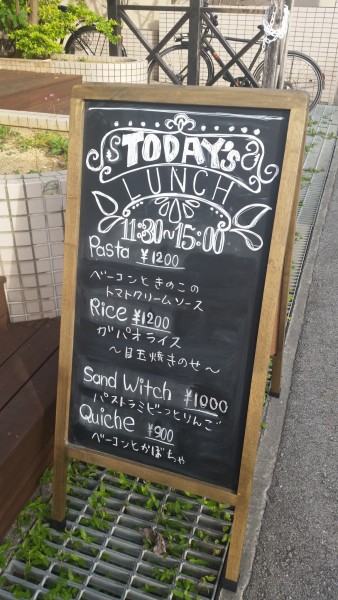 TODAY'S
LUNCH
11:30~15:00
Pasta ¥1200
ベーコンときのこの
トマトクリームソース
Rice ¥1200
ガパオライス
～目玉焼きのせ～
Sand Witch ¥1000
パストラミビーフとりんご
Quiche ¥900
ベーコンとかぼちゃ